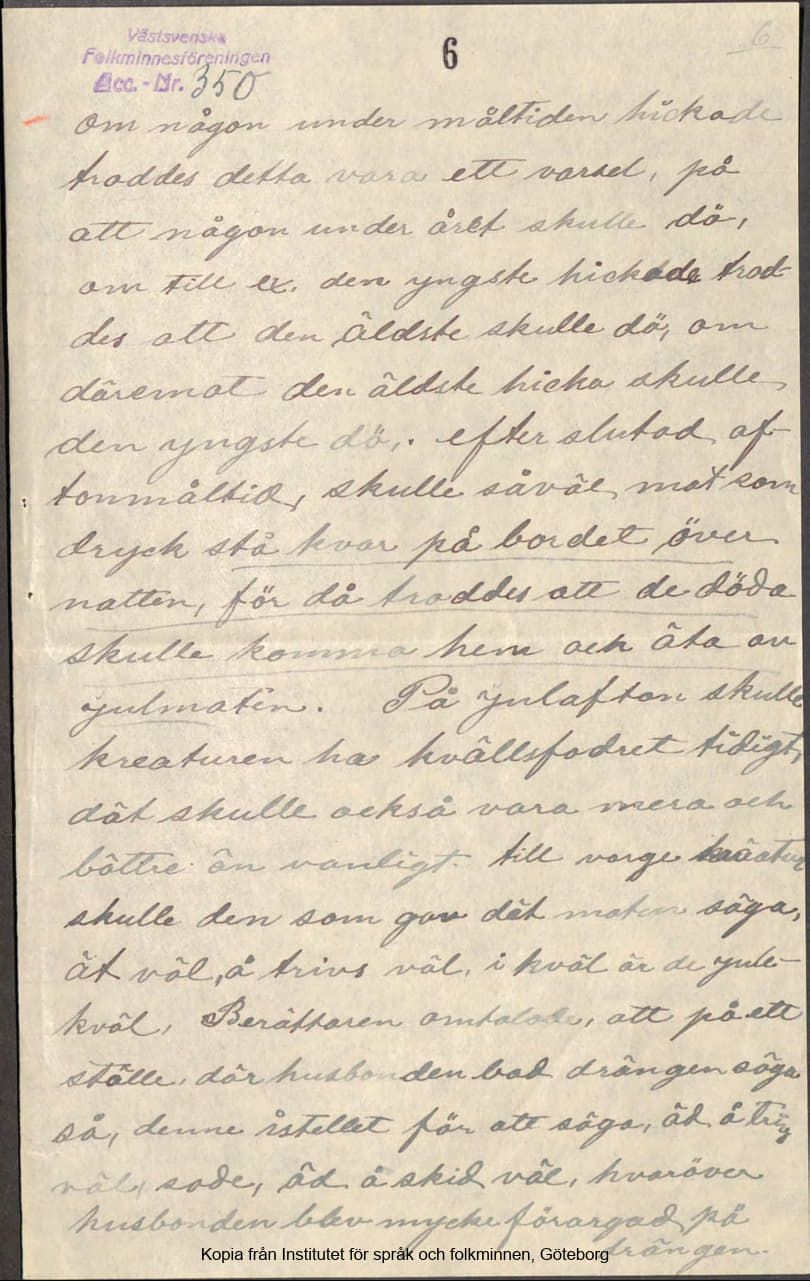 Västsvenska
Folkminnesföreningen
Acc. - Nr. 350
6
6
om någon under måltiden hickade
troddes detta vara ett varsel, på
att någon under året skulle dö,
om till ex. den yngste hickade trod-
des att den äldste skulle dö, om
däremot den äldste hicka skulle
den yngste dö,. efter slutad af-
tonmåltid, skulle såväl mat som
dryck stå kvar på bordet över
natten, för då troddes att de döda
skulle komma hem och äta av
julmaten. På julafton skulle
kreaturen ha kvällsfodret tidigt,
dät skulle också vara mera och
bättre än vanligt. till varge kräatur
skulle den som gav dät maten säga,
ät väl, å trivs väl, i kväl är de jule-
kväl, Berättaren omtalade, att på ett
ställe, där husbonden bad drängen säga
så, denne istellet för att säga, äd å triv
väl, sade, äd å skid väl, hvaröver
husbonden blev mycke förargad på
drängen.
Kopia från Institutet för språk och folkminnen, Göteborg